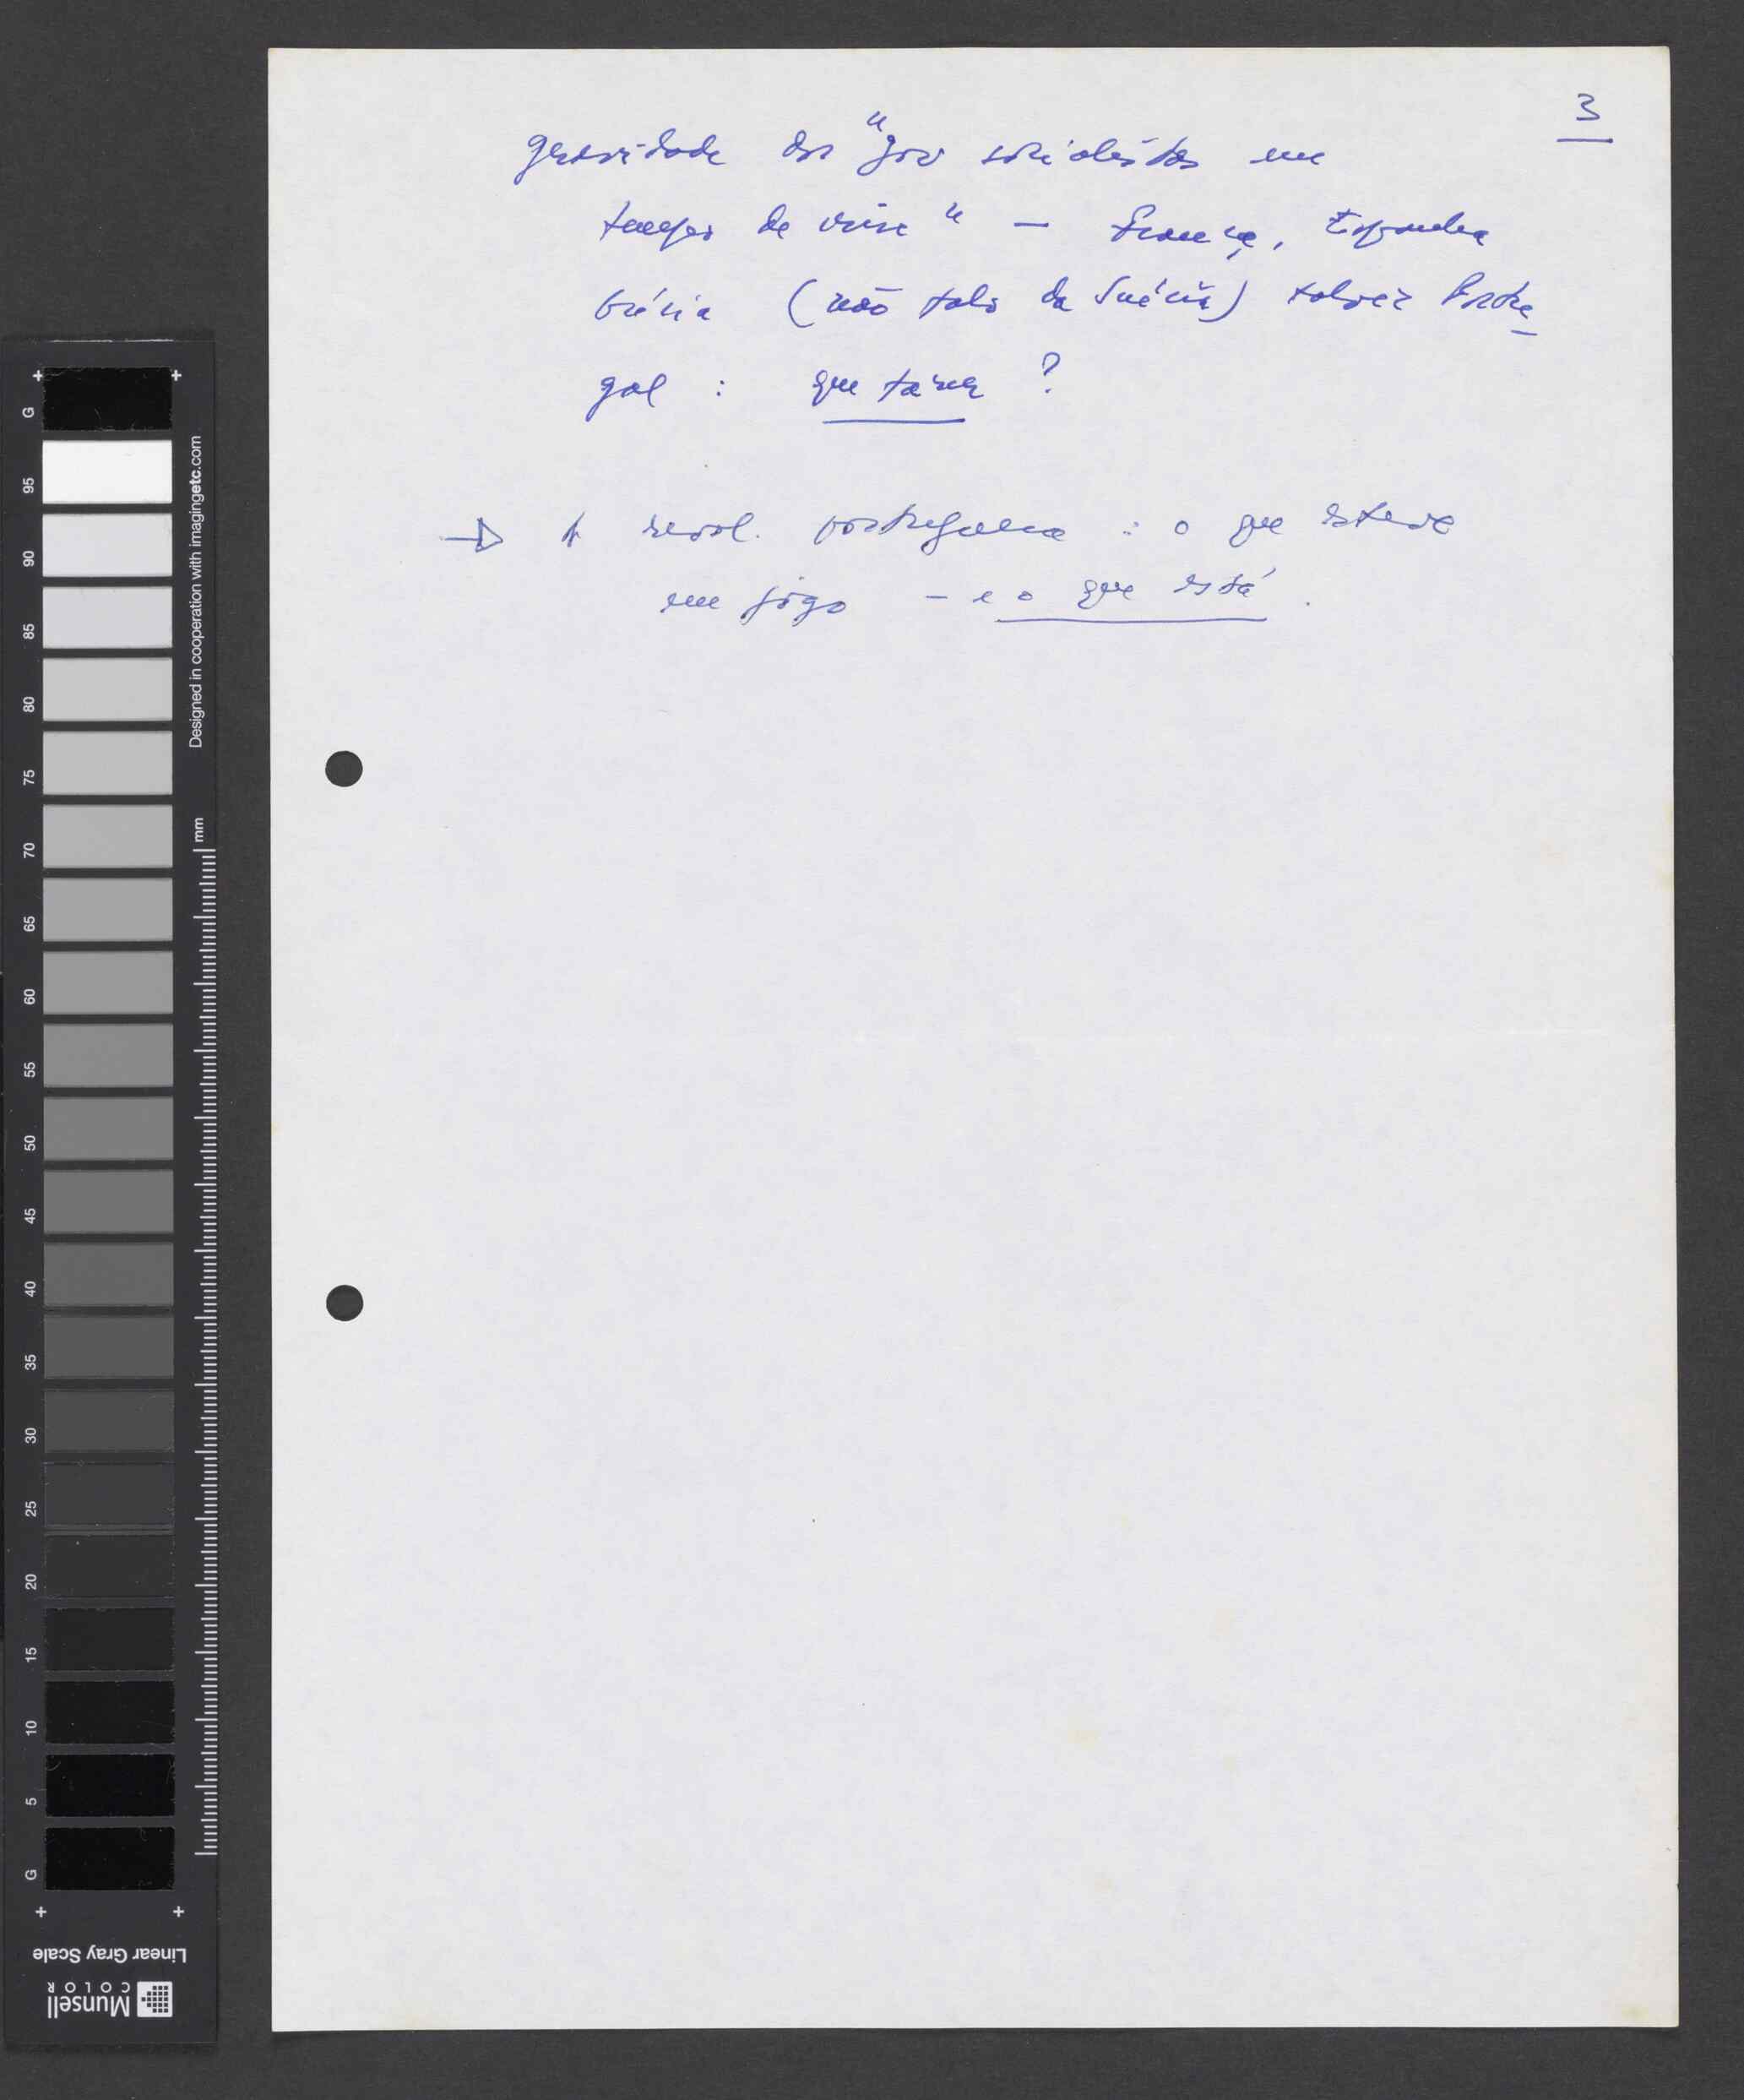 3
gravidade dos "gov socialistas em
tempos de crise" — França, Espanha
Grécia (não falo da Suécia) talvez Portu
gal : que tarefa ?
→ A revol. portuguesa : o que esteve
em jogo — e o que está.
G
95
90
85
80
75
70
65
60
55
50
45
40
35
30
25
20
15
10
5
G
Designed in cooperation with imagingetc.com
mm
Linear Gray Scale
Munsell
COLOR